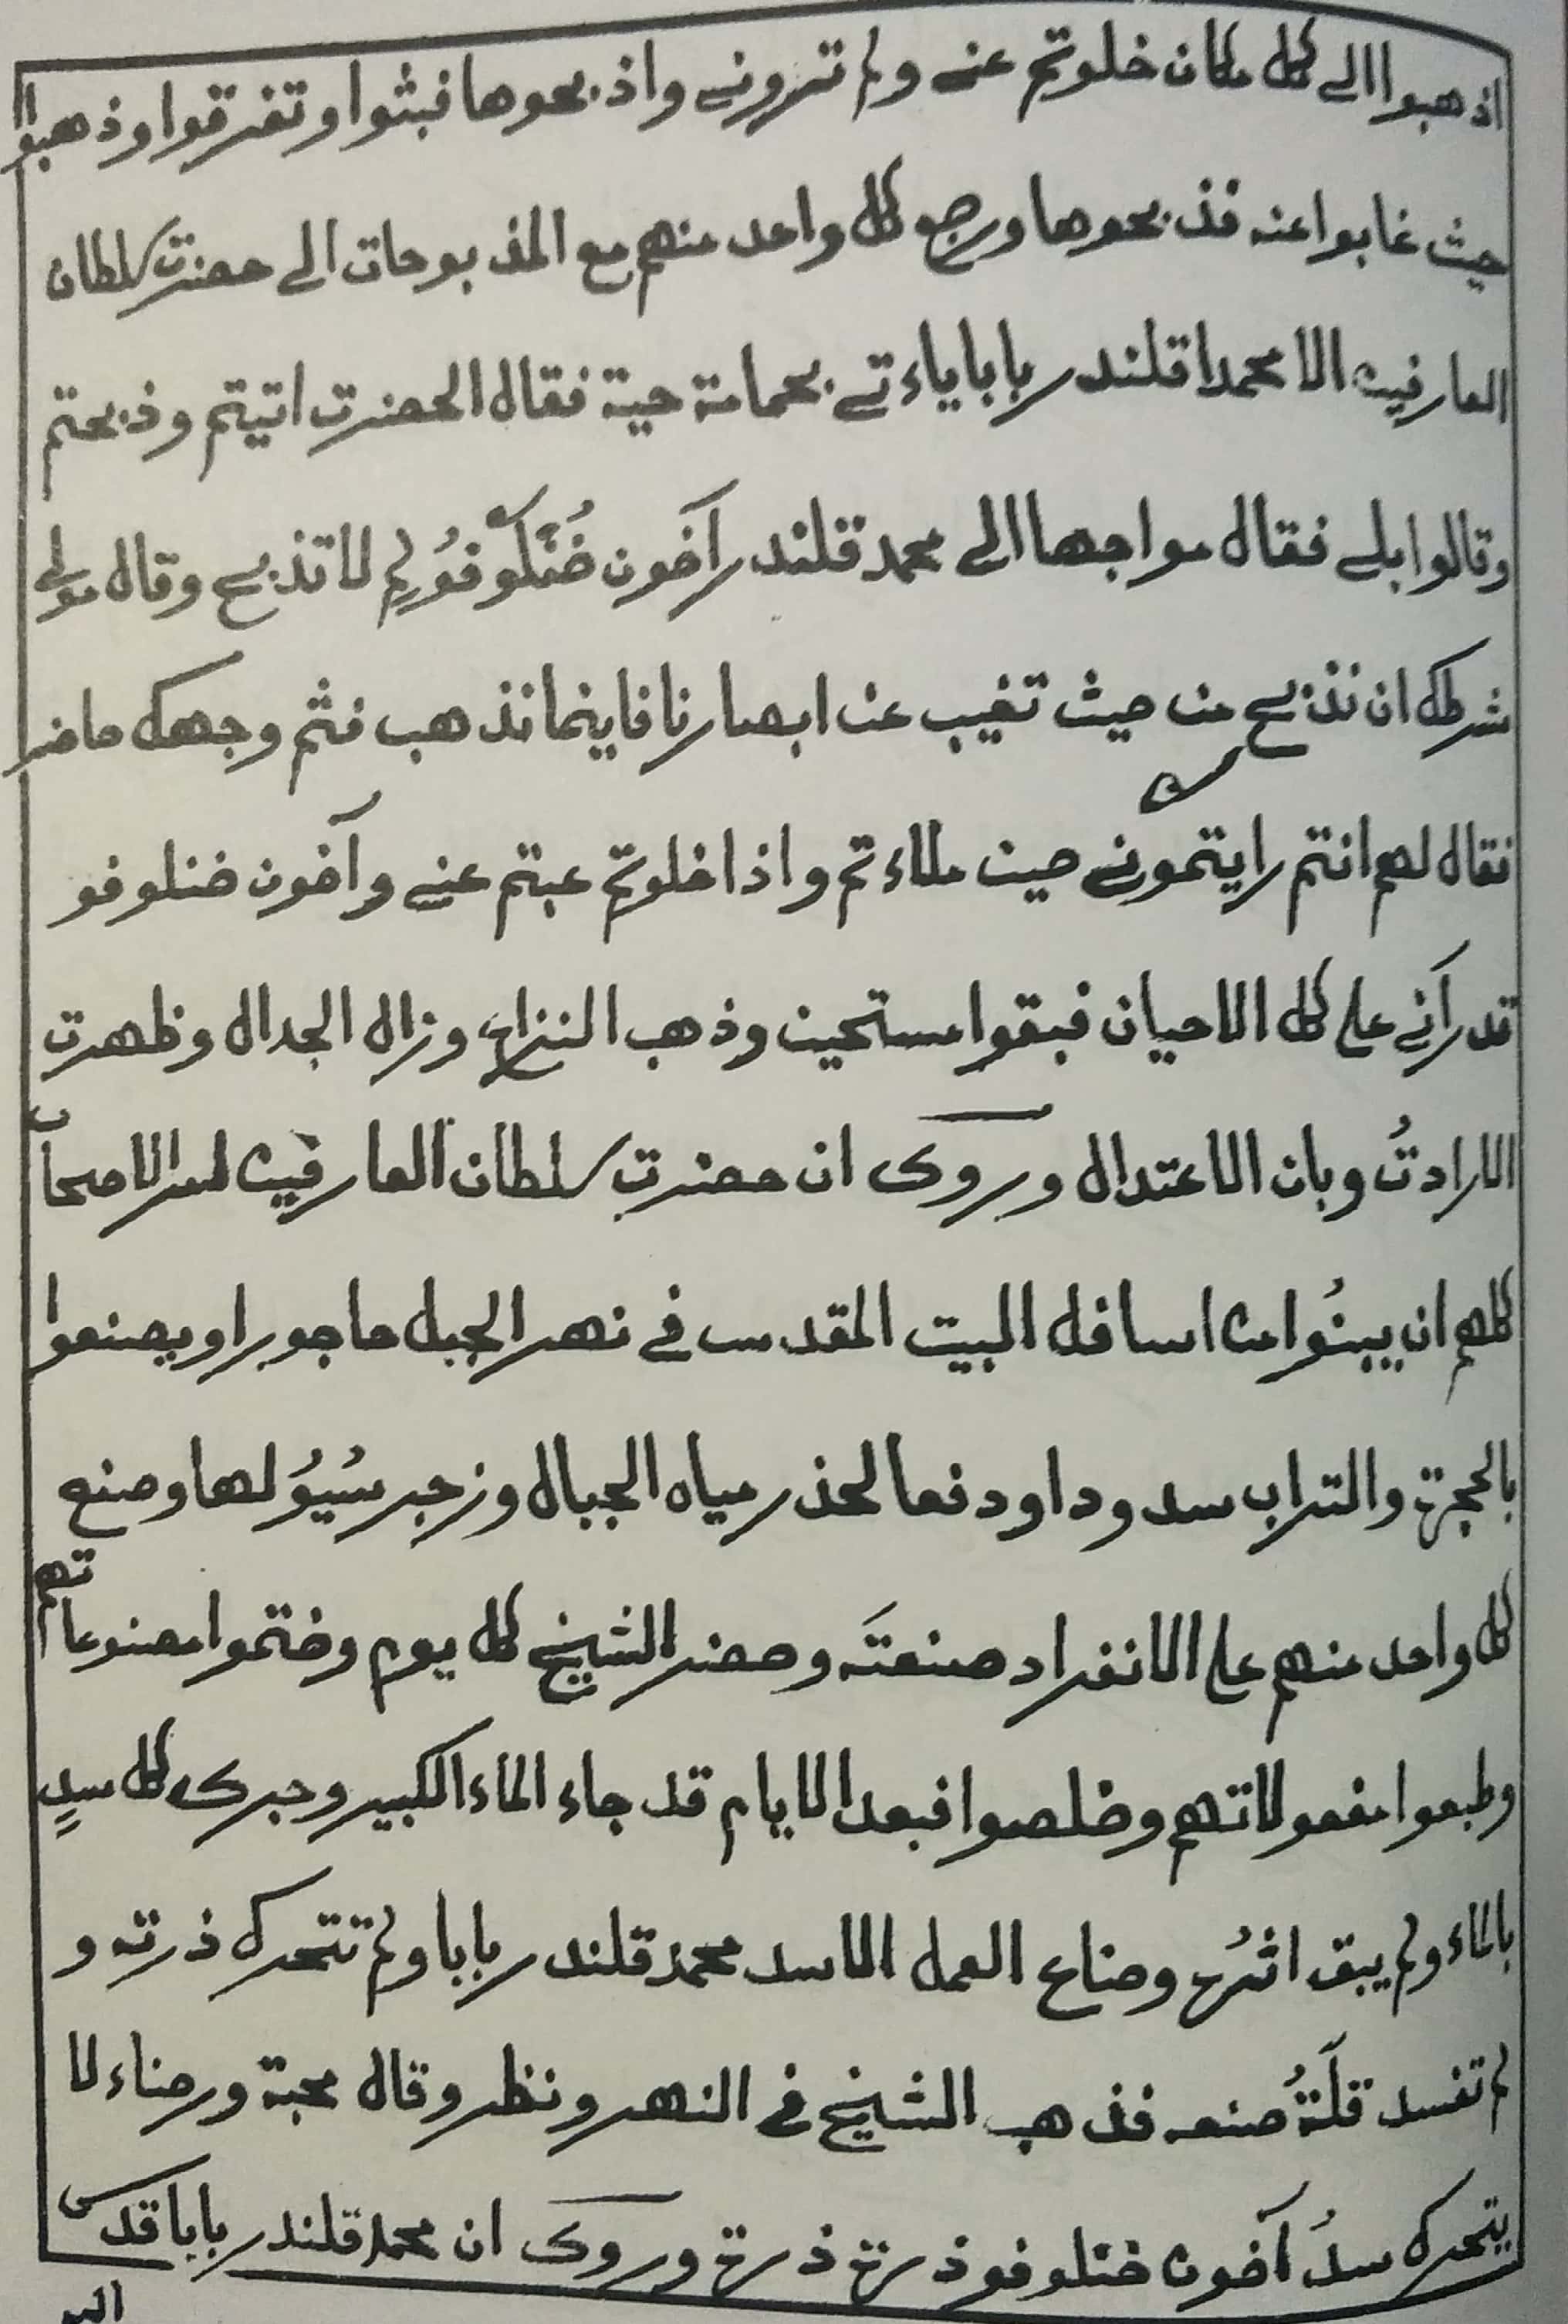 اذهبوا الى كل مكان خلوتم عنى ولم ترونى واذبحوها فبثوا وتفرقوا وذهبوا
حيث غابوا عنه فذبحوها ورجع كل واحد منهم مع المذبوحات الى حضرت سلطان
العارفين الا محمدا قلندر بابا ياءتى بحمامة حية فقال الحضرت اتيتم وذبحتم
وقالوا بلى فقال مواجها الى محمد قلندر آخون ضُنلوفُو لِم لا تذبح وقال مولى
شرطك ان نذبح من حيث تغيب عن ابصارنا فاينما نذهب فثم وجهك حاضر
فقال لهم انتم رايتمونى حين ملاءتم واذا خلوتم عبتم عنى وآخون ضنلوفو
قد رآنى على كل الاحيان فبقوا مستحين وذهب النزاع وزال الجدال وظهرت
الارادتُ وبان الاعتدال وروى ان حضرت سلطان العارفين امر الاصحاب
كلهم ان يبنُوا من اسافل البيت المقدس فى نهر الجبل حاجورا ويصنعوا
بالحجرة والتراب سدودا ودفعا لحذر مياه الجبال وزجر سُيُولها وصنع
كل واحد منهم على الانفراد صنعتَه وحضر الشيخ كل يوم وختموا مصنوعاتهم
وطبعوا مفعولاتهم وخلصوا فبعد الايام قد جاء الماء الكبير وجرى كل سدٍ
بالماء ولم يبق اثرُه وضاع العمل الا سد محمد قلندر بابا ولم تتحرك ذرته و
لم تفسد قلَّةُ صنعه فذهب الشيخ فى النهر ونظر وقال محبة ورضاء لا
يتحرك سدُ آخون ضنلوفو ذرة ذرة وروى ان محمد قلندر بابا قدس